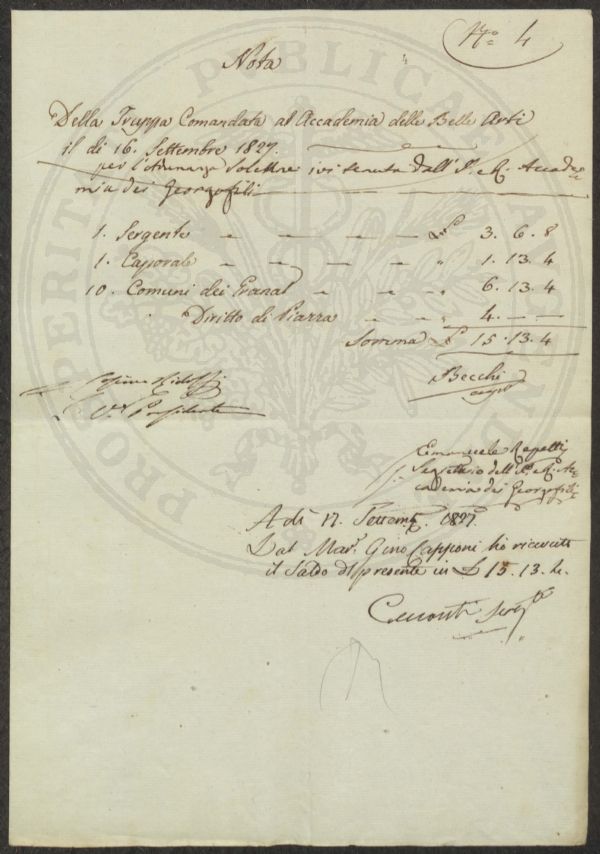 N.o 4
Nota
Della Truppa Comandata al Accademia delle Belle Arti
il di 16. Settembre 1827.
per l'Adunanza Solenne ivi tenuta dall'I. e R. Accade
mia dei Georgofili
1. Sergente - - - - - £ 3. 6. 8
1. Caporale - - - - - " 1. 13. 4
10. Comuni dei Granat - - " 6. 13. 4
Diritto di Piazza - - " 4. - -
Somma £ 15. 13. 4
Becchi
Cosimo Ridolfi
V. Presidente
Emanuele Repetti
Segretario dell'I. e R. Ac
cademia dei Georgofili
A dì 17. Settemb. 1827.
Dal Mar. Gino Capponi ho ricevuto
il Saldo del presente in £ 15. 13. 4.
PROSPERITATI PUBLICAE AUGENDAE